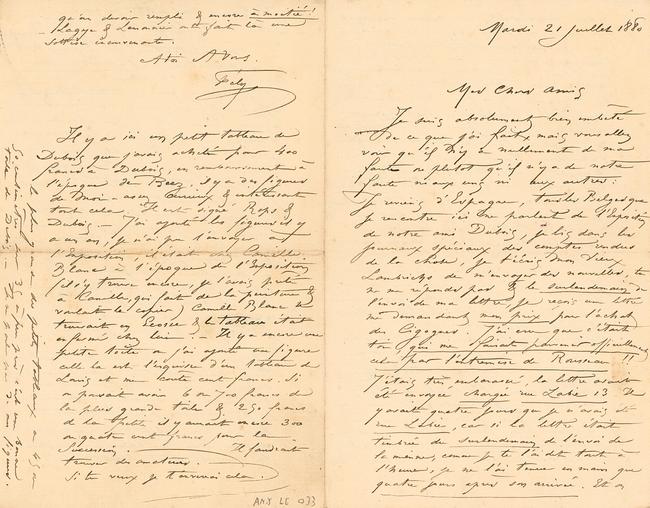 Mardi 21 Juillet 1880
Mes chers amis
Je suis absolument bien embêté
de ce que j'ai fait, mais vous allez
voir qu'il n'y a nullement de ma
faute ou plutôt qu'il n'y a de notre
faute ni aux uns ni aux autres:
Je reviens d'Espagne, tous les Belges que
je rencontre ici me parlent de l'Exposition
de notre ami Dubois, je lis dans les
journaux spéciaux des comptes rendus
de la chose, je
de m'envoyer des nouvelles, tu
ne me réponds pas & le surlendemain de
l'envoi de ma lettre je reçois une lettre
me demandant mon prix pour l'achat
des Cigognes. J'ai cru que c'était
toi, qui me faisais parvenir officiellement
cela par l'entremise de Rousseau !!
J'étais très embarassé, la lettre avait
été envoyée chargée rue Labie 13. Il
y avait quatre jours que je n'avais été
rue Labie, car si la lettre était
timbrée du surlendemain de l'envoi de
la mienne, comme je te l'ai dit tout à
l'heure, je ne l'ai trouvé en mains que
quatre jours après son arrivée. Et on
qu'un devoir rempli & encore à moitié!
Lagye & Lemonnier ont fait là une
sottise
A toi A Vous.
Fély
Il y a ici un petit tableau de
Dubois que j'avais acheté pour 400
francs à Dubois, en remboursement à
l'époque de il y a des figures
de moi assez curieux & intéressant
tout cela. Il est signé Rops &
Dubois. J'ai ajouté les figures il y
a un an, je n'ai pu l'envoyer à
l'Exposition il était chez Camille
Blanc à l'époque de l'Exposition
(il s'y trouve encore, je l'avais prêté
à Camille, qui fait de la peinture &
voulait le copier) Camille Blanc se
trouvait en Ecosse & le tableau était
enfermé chez lui. – Il y a encore une
petite toile où j'ai ajouté une figure
celle-là est l'esquisse d'un tableau de
Louis et me coûte cent francs. Si
on pouvait avoir 6 ou 700 francs de
la plus grande toile & 250 francs
de la petite il y aurait encore 300
ou quatre cent francs pour la
succession. Il faudrait
trouver des amateurs.
Si tu veux je t'enverrai cela.
la plus grande des petits tableaux a 45 on
50 centimètres sur 35 à peu près c'est une bonne
toile de Dubois. Il y a quelque de mes figures.
AMX LE 033